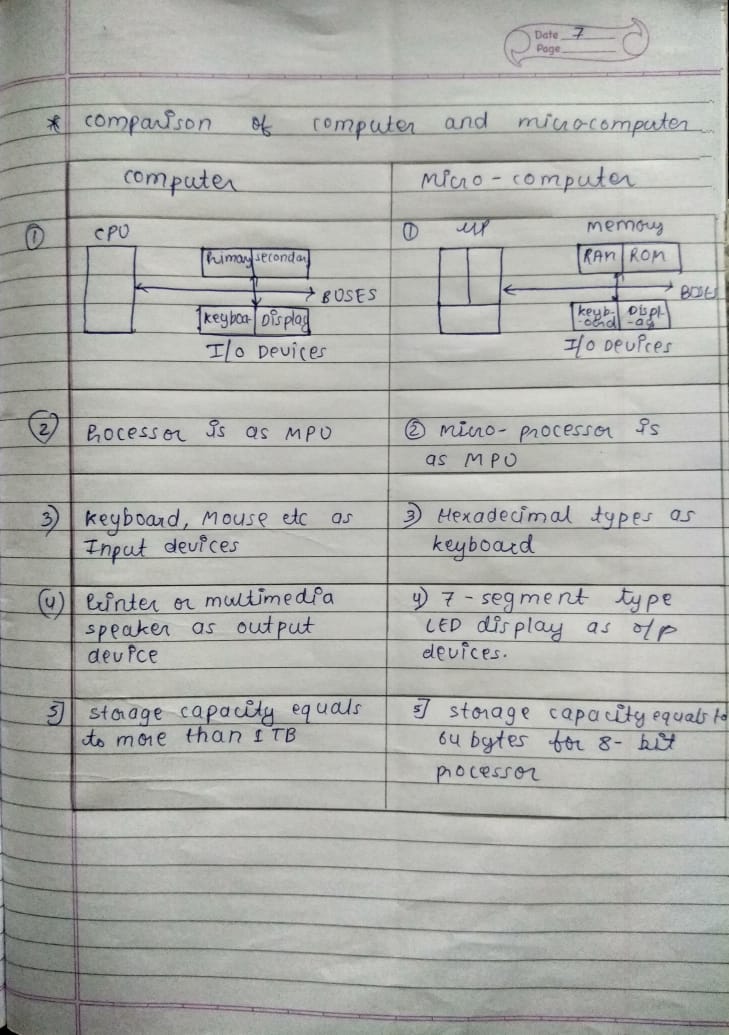 Date 7
Page
* comparison of computer and micro-computer
computer
micro-computer
① CPU
Primary secondar
BUSES
keyboa Display
I/o Devices
① MP memory
RAM ROM
BUSES
keyb- Displ-
-oard -ay
I/o Devices
② Processor is as MPU
② micro-processor is
as MPU
3) keyboard, mouse etc as
Input devices
3) Hexadecimal types as
keyboard
(4) Printer or multimedia
speaker as output
device
4) 7-segment type
LED display as o/p
devices.
5] storage capacity equals
to more than 1 TB
5] storage capacity equals to
64 bytes for 8-bit
processor